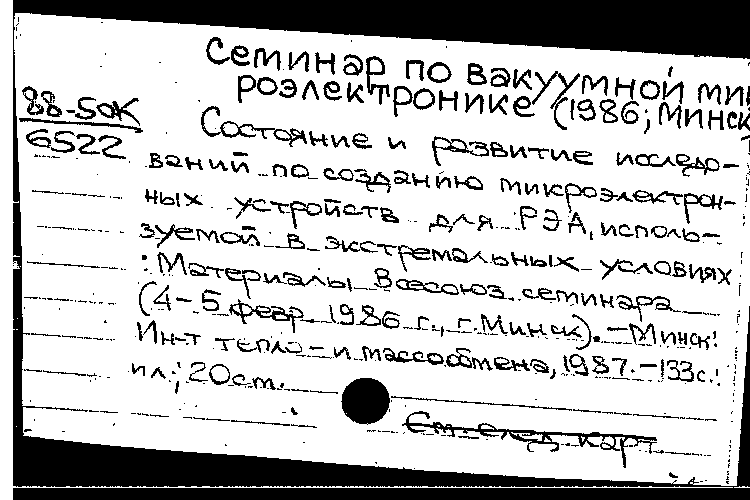 Семинар по вакуумной ми
роэлектронике (1986; Минск
88-50К
6522
Состояние и развитие исследо-
ваний по созданию микроэлектрон-
ных устройств для РЭА, исполь-
зуемой в экстремальных условиях
: Материалы Всесоюз. семинара
(4-5 февр. 1986 г., г. Минск). - Минск:
Ин-т тепло- и массообмена, 1987. - 133с.:
ил.; 20см.
См. след. карт.